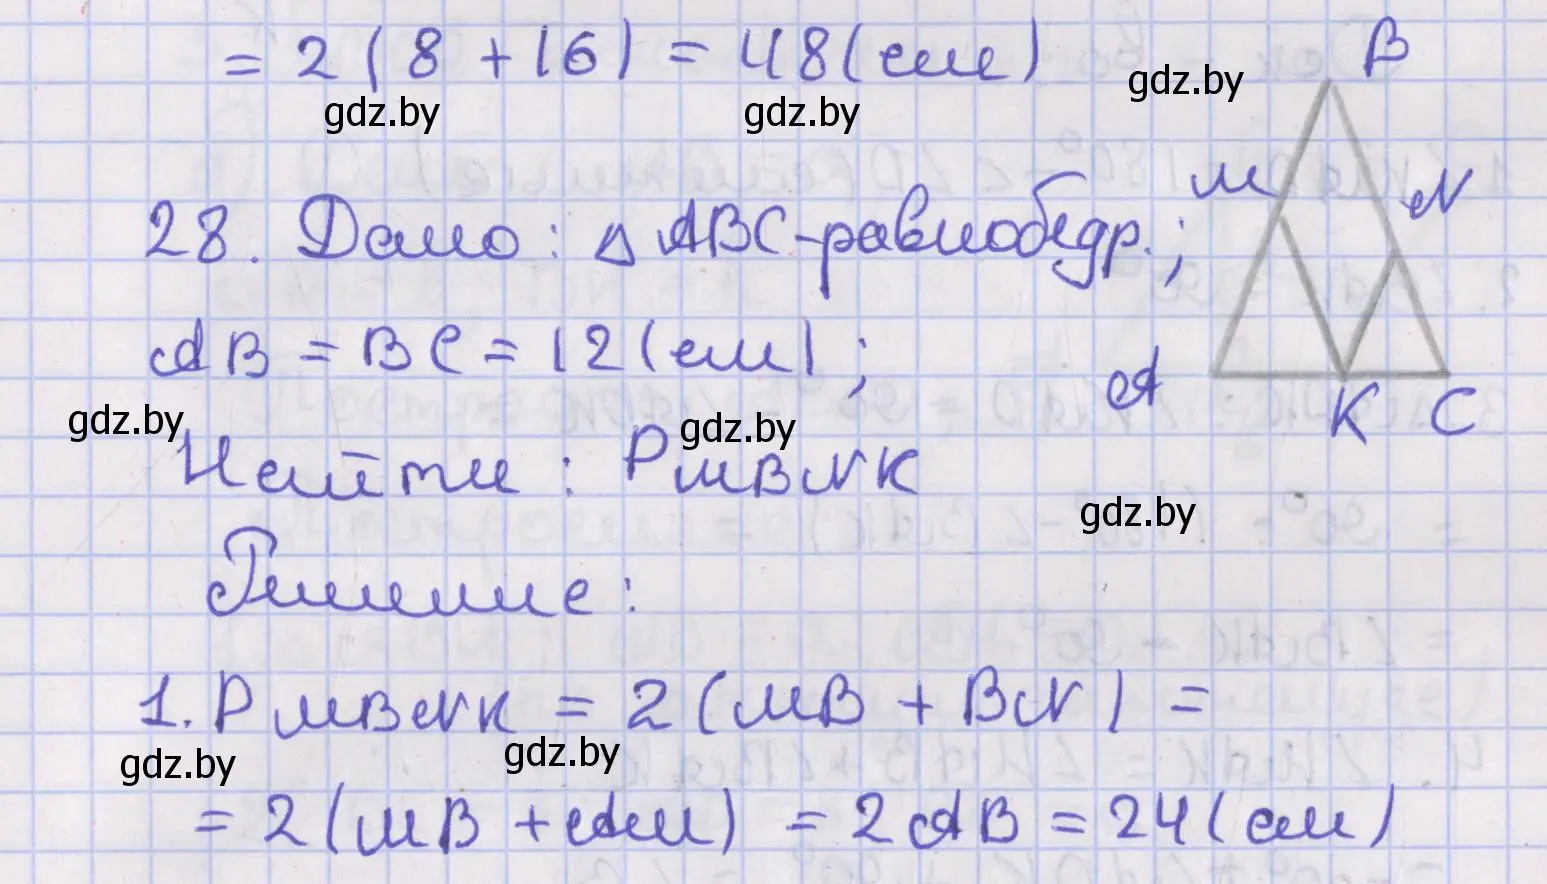 = 2 (8 + 16) = 48 (см)
gdz.by gdz.by gdz.by
B
M N
28. Дано: △ ABC - равнобедр.;
AB = BC = 12 (см);
A K C
gdz.by gdz.by
Найти: P MBNK
gdz.by
Решение:
1. P MBNK = 2 (MB + BN) =
gdz.by gdz.by
= 2 (MB + AM) = 2 AB = 24 (см)